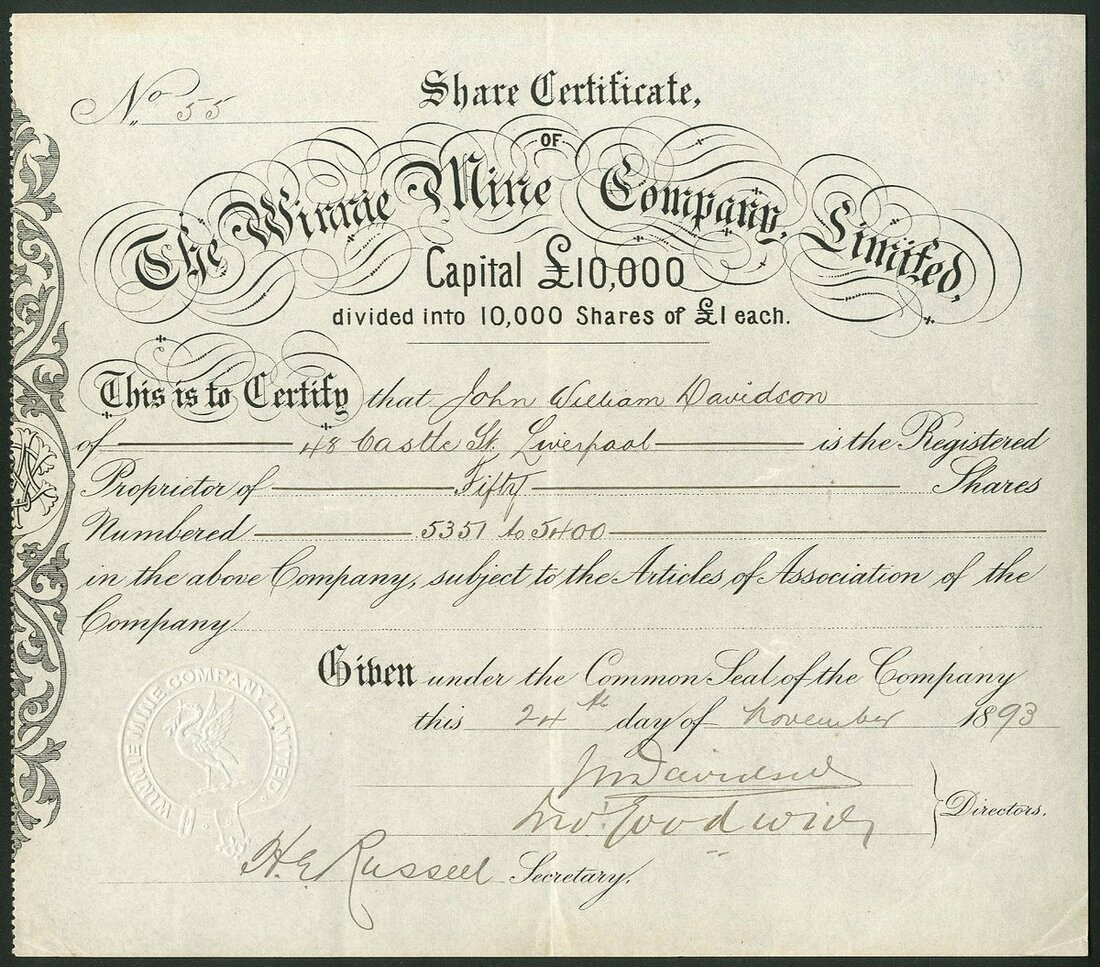 No 55
Share Certificate,
OF
The Winnie Mine Company, Limited,
Capital £10,000
divided into 10,000 Shares of £1 each.
This is to Certify that John William Davidson
of 48 Castle St. Liverpool is the Registered
Proprietor of Fifty Shares
Numbered 5351 to 5400
in the above Company, subject to the Articles of Association of the
Company
Given under the Common Seal of the Company
this 24th day of November 1893
WINNIE MINE COMPANY LIMITED.
JWDavidson
Goodwin
Directors.
H. E. Russell Secretary.